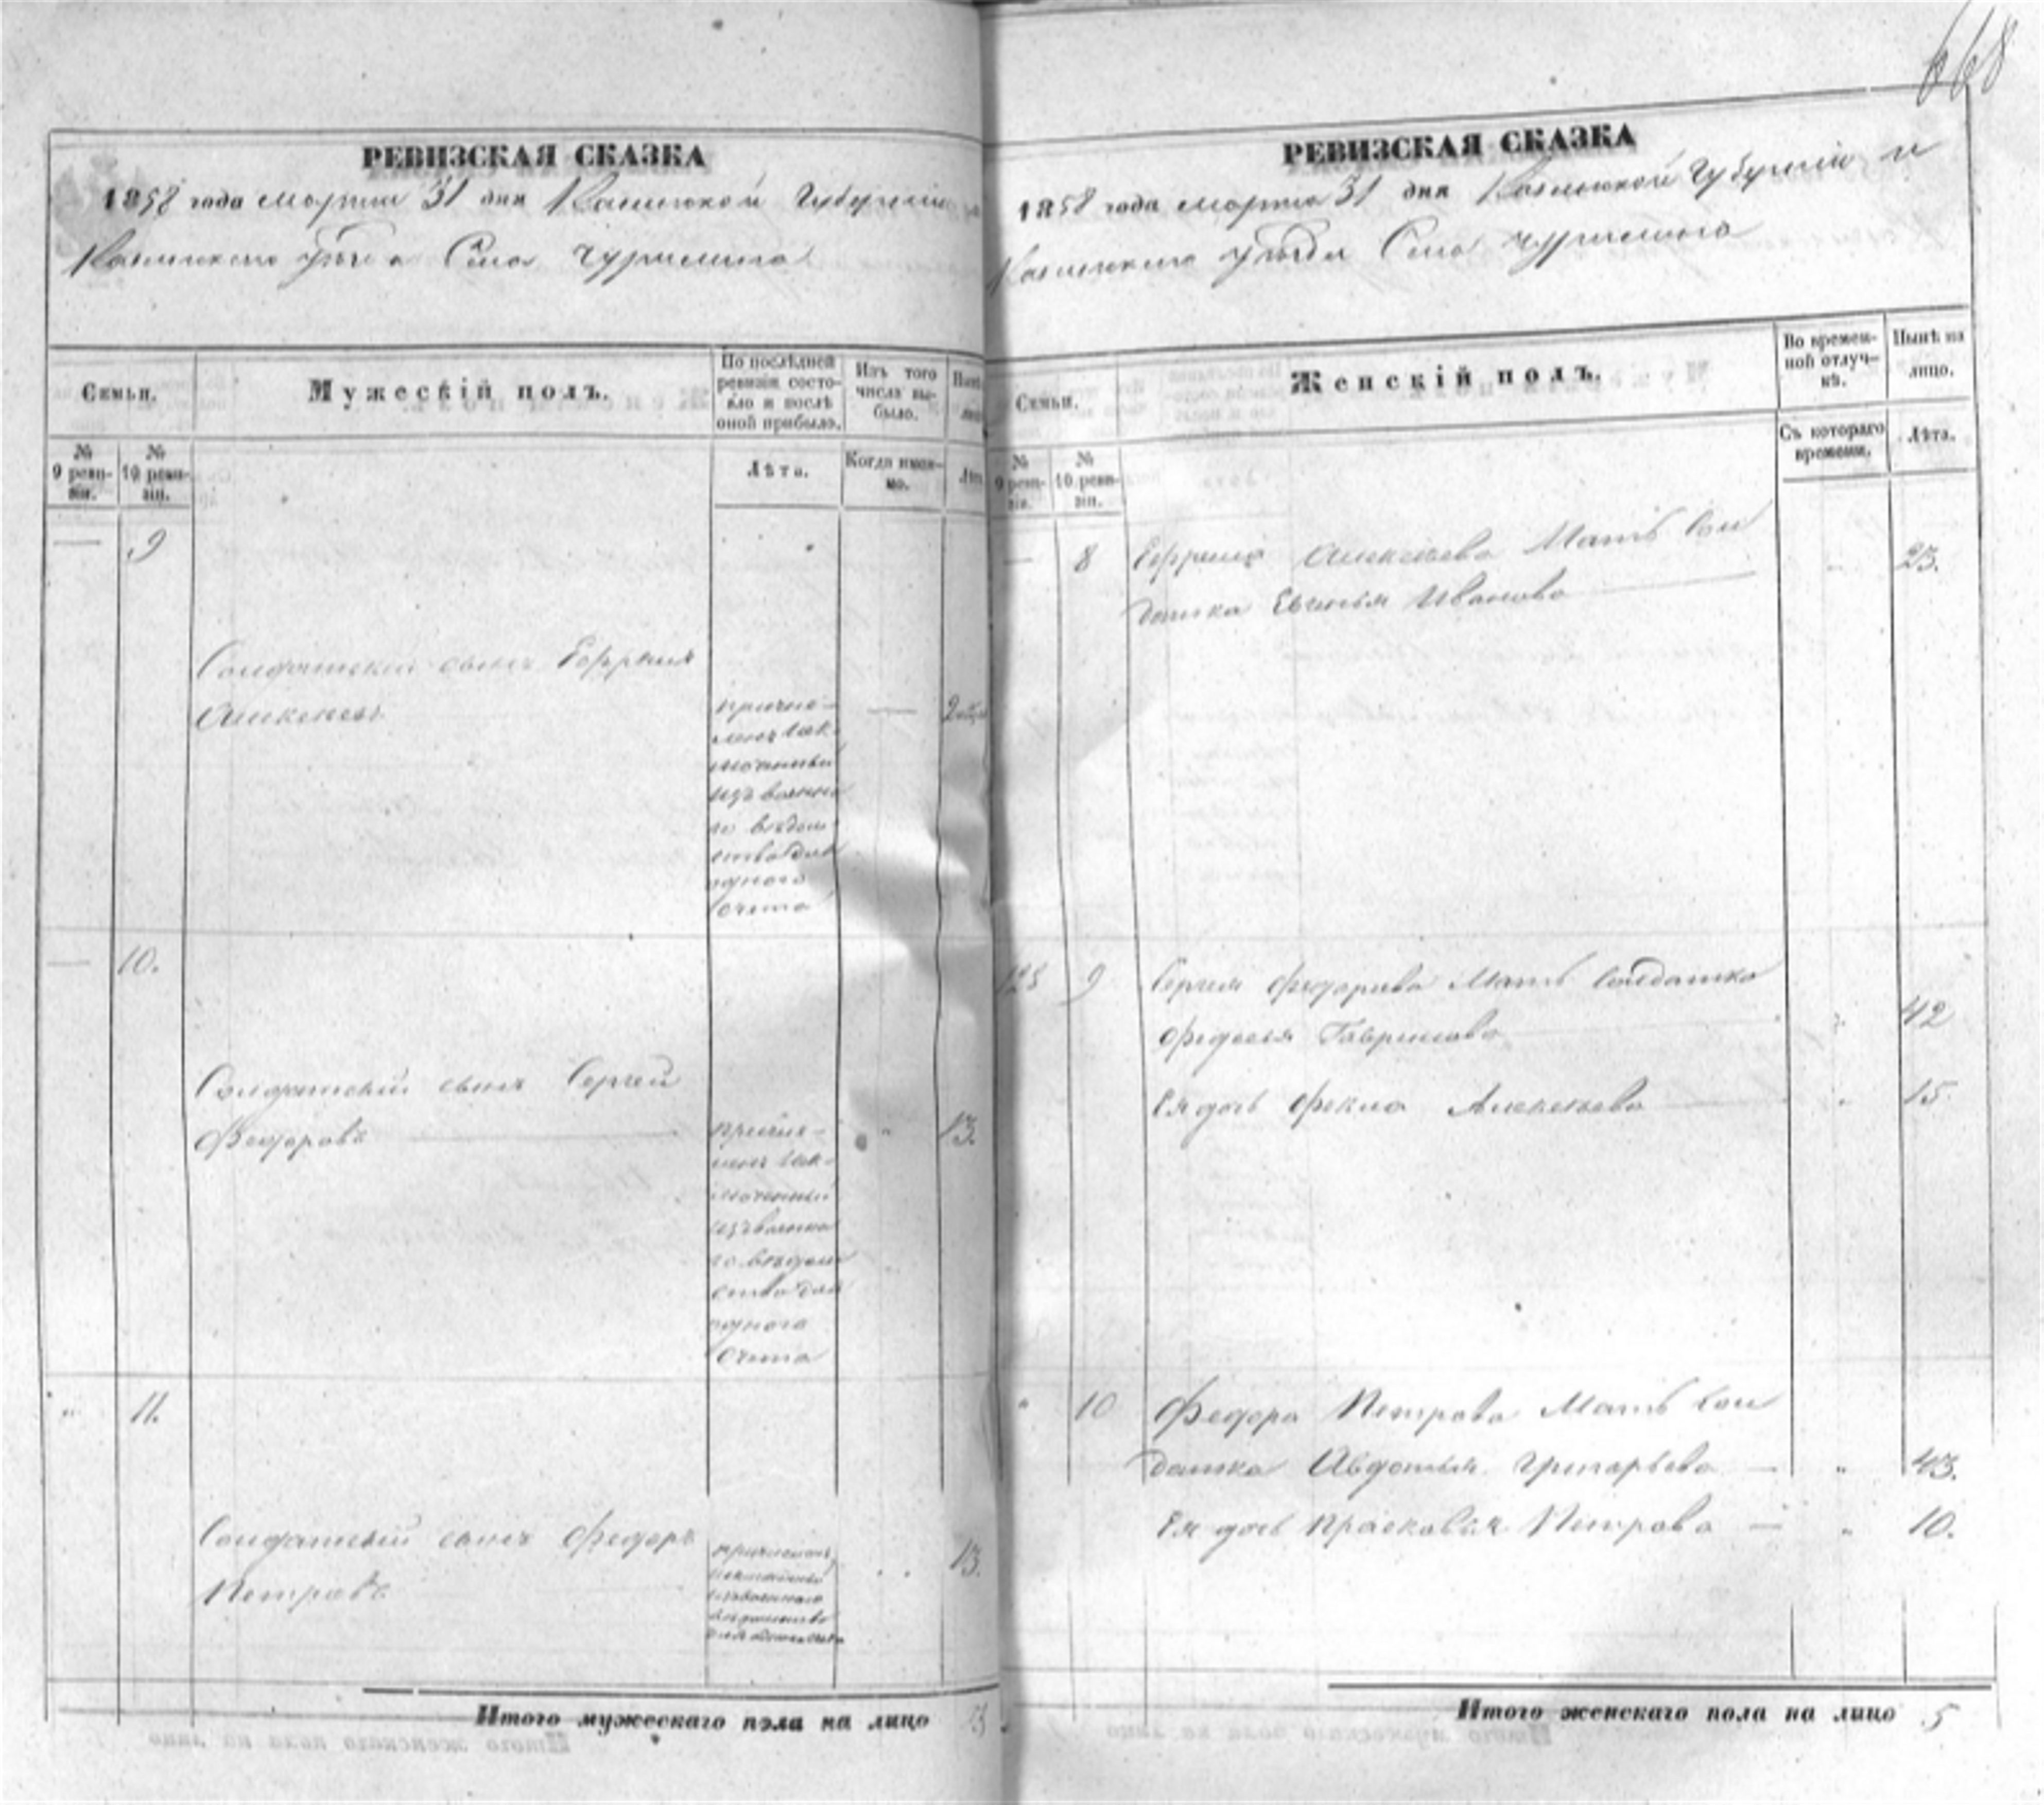 668
РЕВИЗСКАЯ СКАЗКА
1858 года марта 31 дня Калужской Губерніи
Калужскаго уѣзда Села Чурилина
Семьи.
Мужескій полъ.
По послѣдней ревизіи состояло и послѣ оной прибыло.
Изъ того числа выбыло.
№ 9 ревизіи.
№ 10 ревизіи.
Лѣта.
Когда именно.
— 9
Солдатскій сынъ Ефремъ
Алексеевъ
причис-
ленъ Иск-
люченный
изъ военна
го вѣдом
ства для
одного
счета
—
— 10.
Солдатскій сынъ Сергей
Федоровъ
причис-
ленъ Иск-
люченный
изъ военна
го вѣдом
ства для
одного
счета
" 13.
" 11.
Солдатскій сынъ Федоръ
Петровъ
причисленъ
13.
Итого мужескаго пола на лицо
РЕВИЗСКАЯ СКАЗКА
1858 года марта 31 дня Калужской Губерніи и
Калужскаго уѣзда Села Чурилина
Семьи.
Женскій полъ.
Во временной отлучкѣ.
Нынѣ на лицо.
№ 9 ревизіи.
№ 10 ревизіи.
Съ котораго времени.
Лѣта.
— 8 Ефрема Алексеева Мать Сол
датка Евгенья Иванова 23.
9 Сергея Федорова Мать Солдатка
Федосья Гаврилова 42
Ея дочь Фекла Алексеева 15
" 10 Федора Петрова Мать Сол
датка Авдотья Григорьева — " 43.
Ея дочь Прасковья Петрова — " 10.
Итого женскаго пола на лицо 5